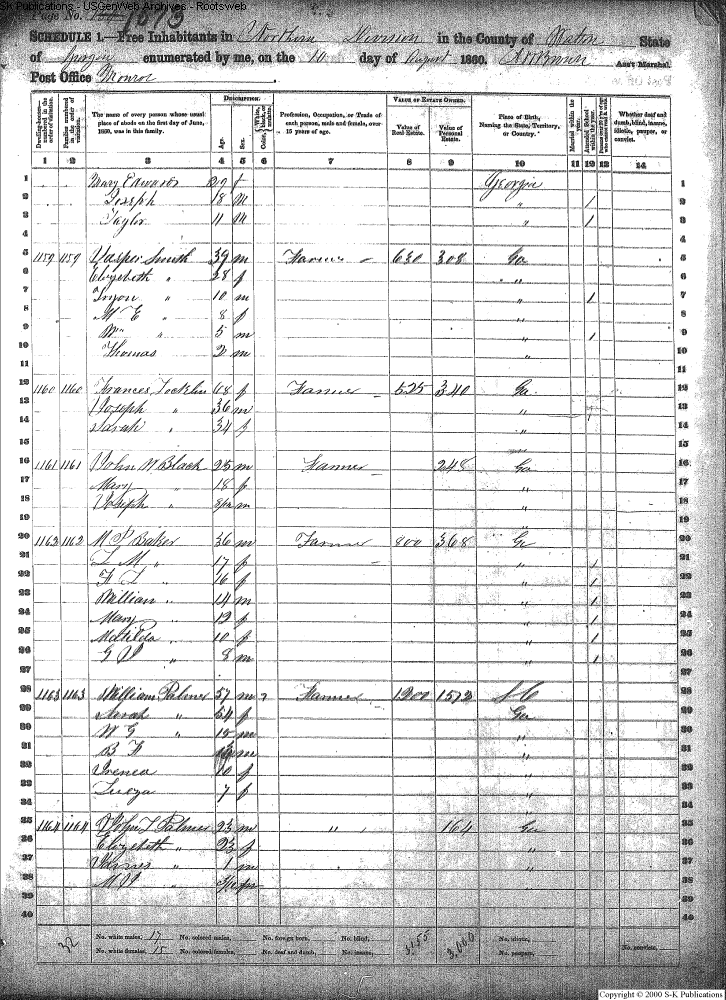 S-K Publications - USGenWeb Archives - Rootsweb
Page No. 1073
SCHEDULE 1.—Free Inhabitants in Northern Division in the County of Walton State
of Georgia enumerated by me, on the 10 day of August 1860. Ass't Marshal.
Post Office Monroe
Dwelling-houses—numbered in the order of visitation.
Families numbered in the order of visitation.
The name of every person whose usual place of abode on the first day of June, 1860, was in this family.
DESCRIPTION.
Age.
Sex.
Color, White, black, or mulatto.
Profession, Occupation, or Trade of each person, male and female, over 15 years of age.
VALUE OF ESTATE OWNED.
Value of Real Estate.
Value of Personal Estate.
Place of Birth, Naming the State, Territory, or Country.
Married within the year.
Attended School within the year.
Whether deaf and dumb, blind, insane, idiotic, pauper, or convict.
1 2 3 4 5 6 7 8 9 10 11 12 13 14
1 Mary Edwards f Georgia 1
2 Joseph 18 m " / 2
3 Taylor 11 m " / 3
4 4
5 1159 1159 Jasper Smith 39 m Farmer 630 308 Ga 5
6 Elizebeth " 28 f " 6
7 " 10 m " / 7
8 M E " 8 f " 8
9 Wm " 5 m " / 9
10 Thomas 2 m " 10
11 11
12 1160 1160 Frances Locklin 68 f Farmer 525 340 Ga 12
13 Joseph " 36 m " 13
14 Sarah " 34 f " 14
15 15
16 1161 1161 John W Black 25 m Farmer 248 Ga 16
17 Mary " 18 f " 17
18 Joseph " m " 18
19 " 19
20 1162 1162 M P Baker 36 m Farmer 800 368 Ga 20
21 L M " 17 f " / 21
22 " 16 f " / 22
23 William " 14 m " / 23
24 Mary " 12 f " / 24
25 Matilda " 10 f " / 25
26 " 8 m " / 26
27 27
28 1163 1163 William Palmer 57 m Farmer 1200 1572 S C 28
29 Sarah " 54 f Ga 29
30 W G " 15 m " 30
31 B F m " 31
32 Irenea 10 f " 32
33 7 f " 33
34 " 34
35 1164 1164 John L Palmer 23 m " 164 Ga 35
36 Elizebeth " 23 f " 36
37 James " 1 m 37
38 " 38
39 39
40 40
32 No. white males, 17 No. colored males, No. foreign born, No. blind, 3155 3,000 No. idiotic, No. convicts,
No. white females, 15 No. colored females, No. deaf and dumb, No. insane, No. paupers,
Copyright © 2000 S-K Publications